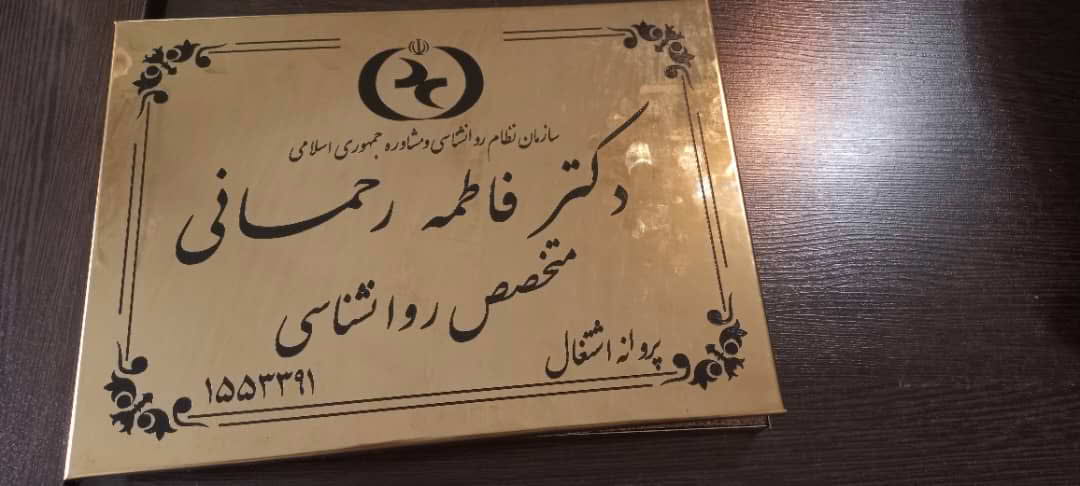 سازمان نظام روانشناسی و مشاوره جمهوری اسلامی
دکتر فاطمه رحمانی
متخصص روانشناسی
پروانه اشتغال
۱۵۵۳۳۹۱